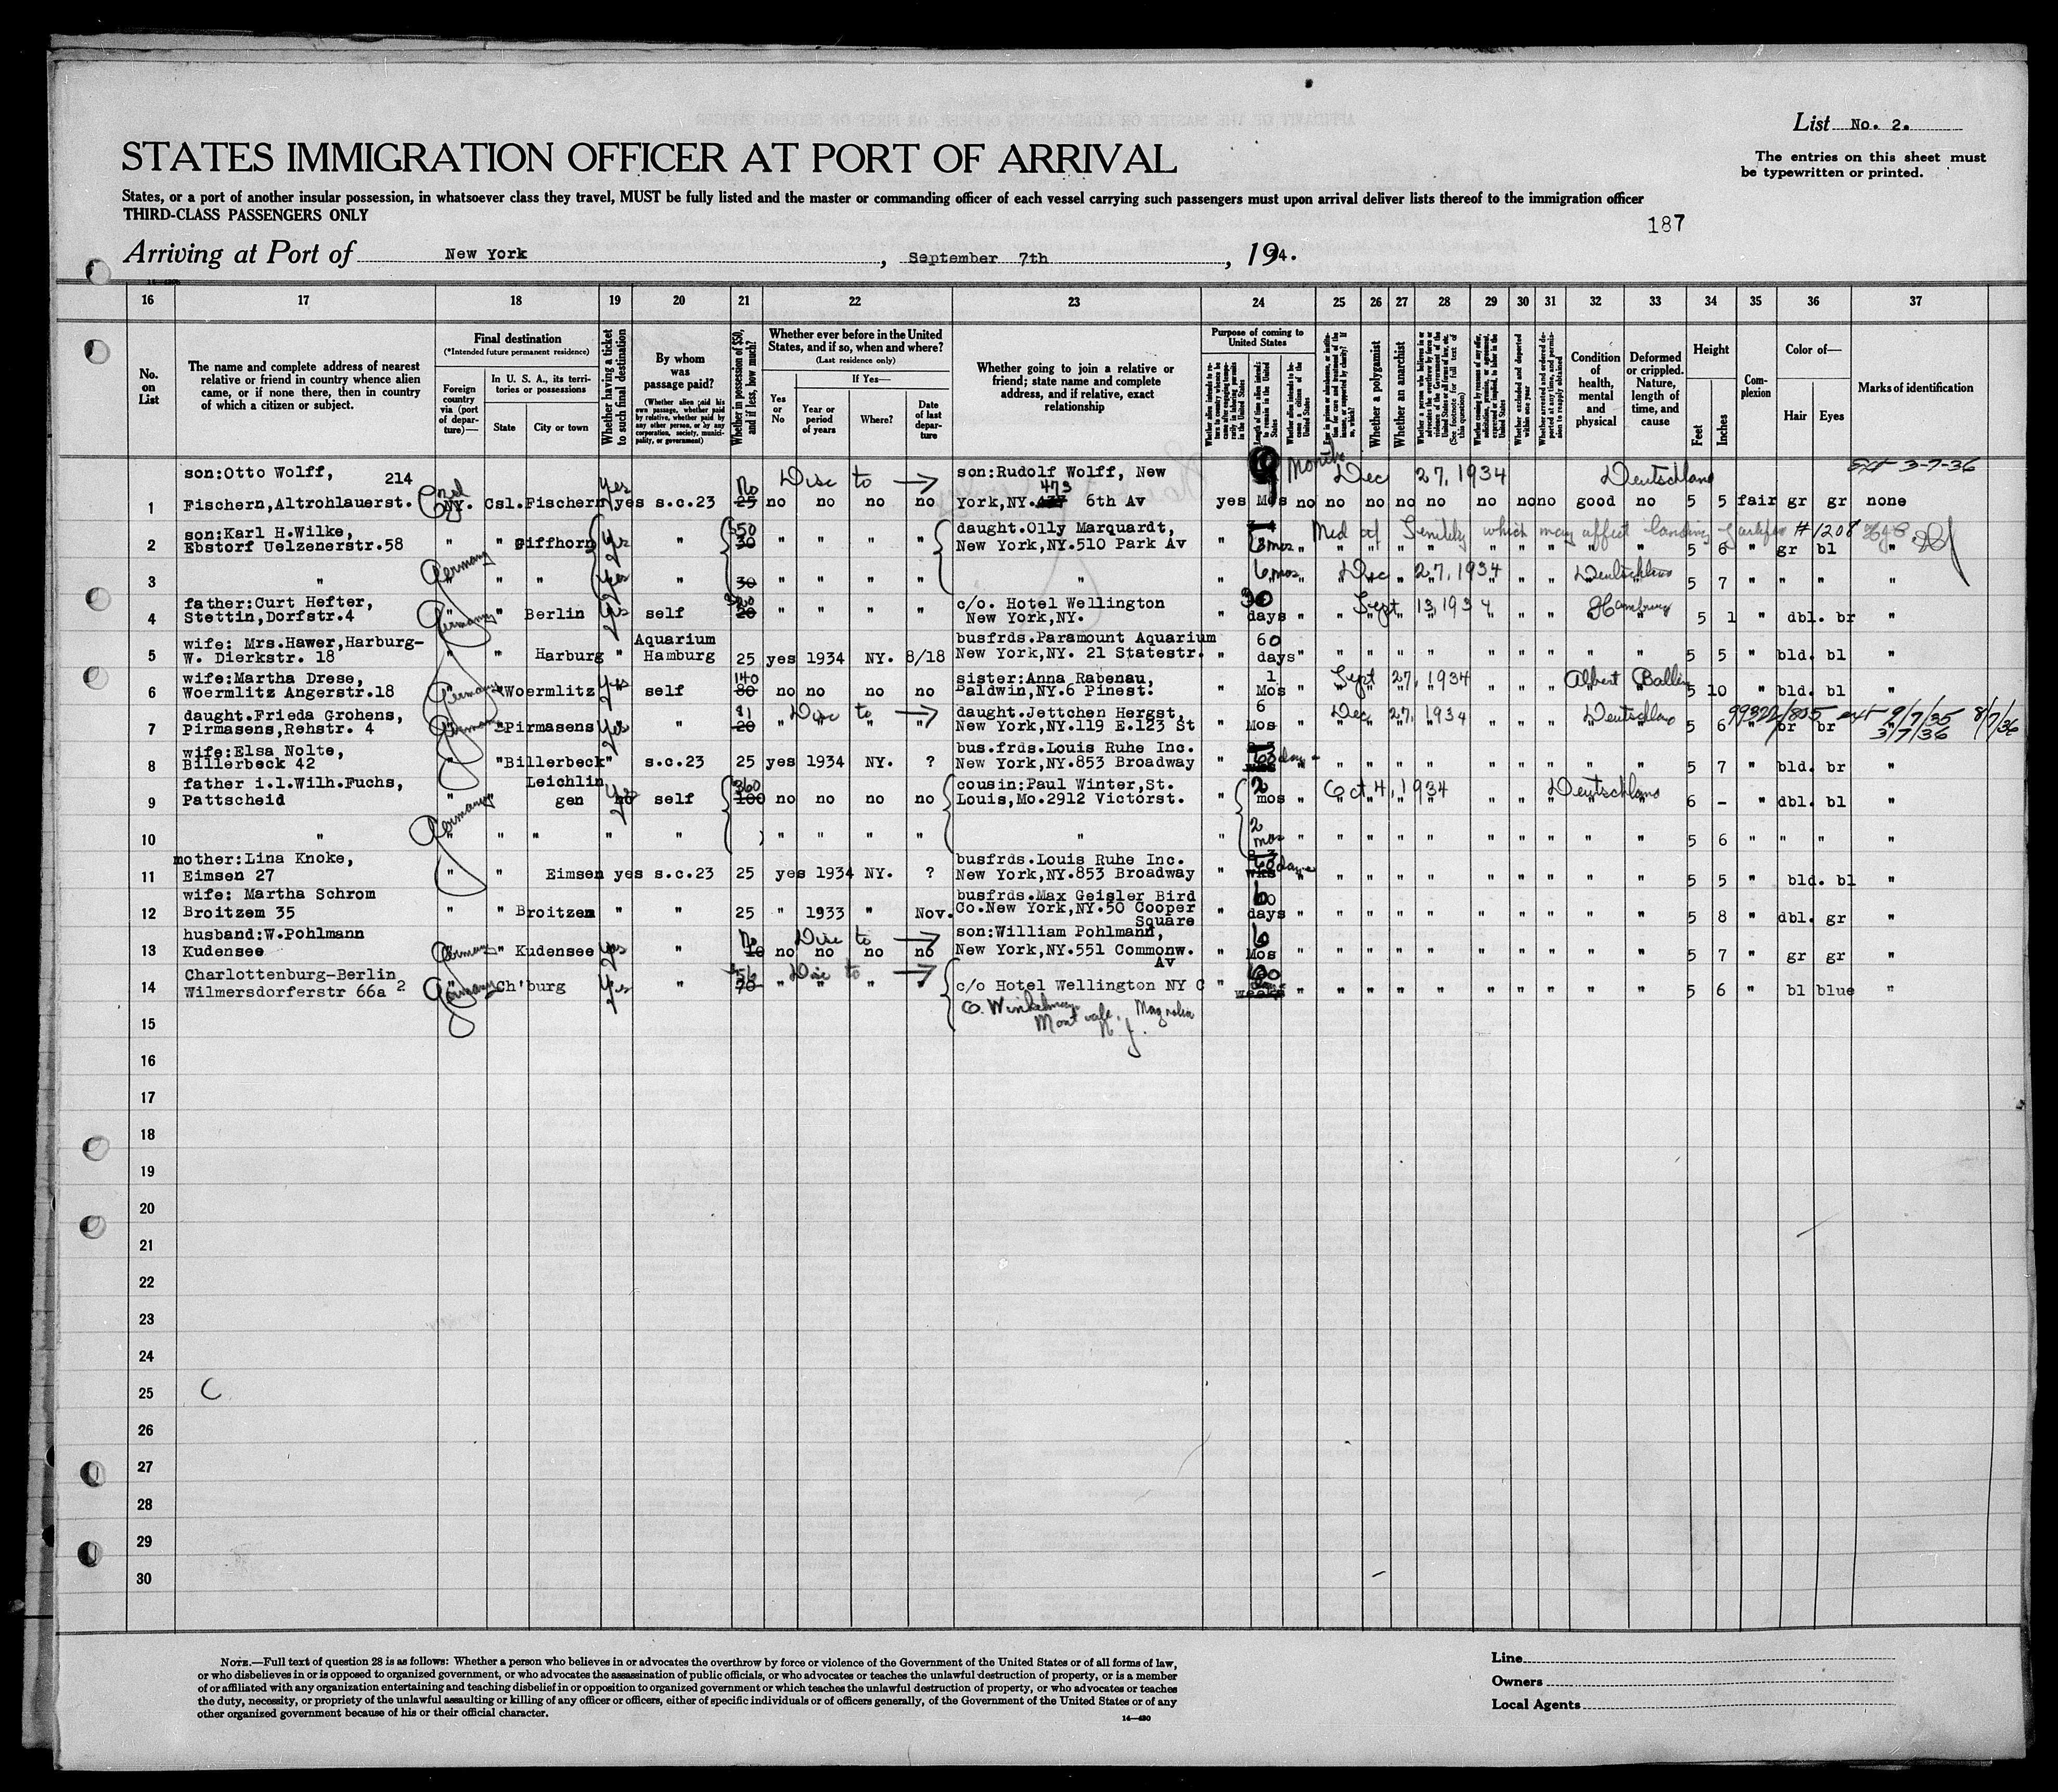 List No. 2.
STATES IMMIGRATION OFFICER AT PORT OF ARRIVAL
The entries on this sheet must
be typewritten or printed.
States, or a port of another insular possession, in whatsoever class they travel, MUST be fully listed and the master or commanding officer of each vessel carrying such passengers must upon arrival deliver lists thereof to the immigration officer
THIRD-CLASS PASSENGERS ONLY
187
Arriving at Port of New York, September 7th, 1934.
16 17 18 19 20 21 22 23 24 25 26 27 28 29 30 31 32 33 34 35 36 37
No. on List
The name and complete address of nearest
relative or friend in country whence alien
came, or if none there, then in country
of which a citizen or subject.
Final destination
(*Intended future permanent residence)
Foreign country via (port of departure)—
In U. S. A., its territories or possessions
State
City or town
Whether having a ticket to such final destination
By whom was passage paid?
(Whether alien paid his own passage, whether paid by relative, whether paid by any other person, or by any corporation, society, municipality, or government)
Whether in possession of $50, and if less, how much?
Whether ever before in the United States, and if so, when and where?
(Last residence only)
If Yes—
Yes or No
Year or period of years
Where?
Date of last departure
Whether going to join a relative or
friend; state name and complete
address, and if relative, exact
relationship
Purpose of coming to United States
Whether a polygamist
Whether an anarchist
Condition of health, mental and physical
Deformed or crippled. Nature, length of time, and cause
Height
Feet
Inches
Complexion
Color of—
Hair
Eyes
Marks of identification
son:Otto Wolff, 214 Disc to son:Rudolf Wolff, New 9 Months Dec 27, 1934 Deutschland ext 3-7-36
1 Fischern,Altrohlauerst. NY. Csl.Fischern yes s.c.23 No 25 no no no no York,NY. 473 6th Av yes Mos no no no no no no no no good no 5 5 fair gr gr none
son:Karl H.Wilke, 50 daught.Olly Marquardt, Med ctf Senility which may affect landing #1208
2 Ebstorf Uelzenerstr.58 " " Giffhorn yes " 30 " " " " New York,NY.510 Park Av " 6 mos " 5 6 " gr bl "
3 " Germany " " yes " 30 " " " " " 6 mos " Dec 27, 1934 Deutschland 5 7 " " " "
father:Curt Hefter, c/o. Hotel Wellington 30
4 Stettin,Dorfstr.4 Germany " Berlin yes self 20 " " " " New York,NY. " days " Sept 13, 1934 Hamburg 5 1 " dbl. br "
wife: Mrs.Hawer,Harburg- Aquarium busfrds.Paramount Aquarium 60
5 W. Dierkstr. 18 " " Harburg " Hamburg 25 yes 1934 NY. 8/18 New York,NY. 21 Statestr. " days " 5 5 " bld. bl "
wife:Martha Drese, 140 sister:Anna Rabenau, 1
6 Woermlitz Angerstr.18 Germany " Woermlitz yes self 80 no no no no Baldwin,NY.6 Pinest. " Mos " Sept 27, 1934 Albert Ballin 5 10 " bld. bl "
daught.Frieda Grohens, 81 Disc to daught.Jettchen Hergst, 6 99322/805 ext 9/7/35 8/7/36
7 Pirmasens,Rehstr. 4 Germany " Pirmasens yes " 20 " " " " New York,NY.119 E.123 St " Mos " Dec 27, 1934 Deutschland 5 6 " br br " 3/7/36
wife:Elsa Nolte, bus.frds.Louis Ruhe Inc.
8 Billerbeck 42 " " Billerbeck " s.c.23 25 yes 1934 NY. ? New York,NY.853 Broadway " days " 5 7 " bld. br "
father i.l.Wilh.Fuchs, Leichlin 360 cousin:Paul Winter,St. 2
9 Pattscheid " " gen no self 100 no no no no Louis,Mo.2912 Victorst. " mos " Oct 4, 1934 Deutschland 6 - " dbl. bl "
10 " Germany " " " " " " " " " " 2 mos " 5 6 " " " "
mother:Lina Knoke, busfrds.Louis Ruhe Inc.
11 Eimsen 27 " " Eimsen yes s.c.23 25 yes 1934 NY. ? New York,NY.853 Broadway " wks days " 5 5 " bld. bl "
wife: Martha Schrom busfrds.Max Geisler Bird 60
12 Broitzem 35 " " Broitzem " " 25 " 1933 " Nov. Co.New York,NY.50 Cooper Square " days " 5 8 " dbl. gr "
husband:W.Pohlmann No Disc to son:William Pohlmann, 6
13 Kudensee Germany " Kudensee yes " 10 no no no no New York,NY.551 Commonw. Av " Mos " 5 7 " gr gr "
Charlottenburg-Berlin 56 Disc to 60
14 Wilmersdorferstr 66a 2 Germany Ch'burg yes " 70 " " " " c/o Hotel Wellington NY C " weeks " 5 6 " bl blue "
Montvale, Magnolia
N.J.
15
16
17
18
19
20
21
22
23
24
25 C
26
27
28
29
30
NOTE.—Full text of question 28 is as follows: Whether a person who believes in or advocates the overthrow by force or violence of the Government of the United States or of all forms of law,
or who disbelieves in or is opposed to organized government, or who advocates the assassination of public officials, or who advocates or teaches the unlawful destruction of property, or is a member
of or affiliated with any organization entertaining and teaching disbelief in or opposition to organized government or which teaches the unlawful destruction of property, or who advocates or teaches
the duty, necessity, or propriety of the unlawful assaulting or killing of any officer or officers, either of specific individuals or of officers generally, of the Government of the United States or of any
other organized government because of his or their official character.
14—430
Line
Owners
Local Agents